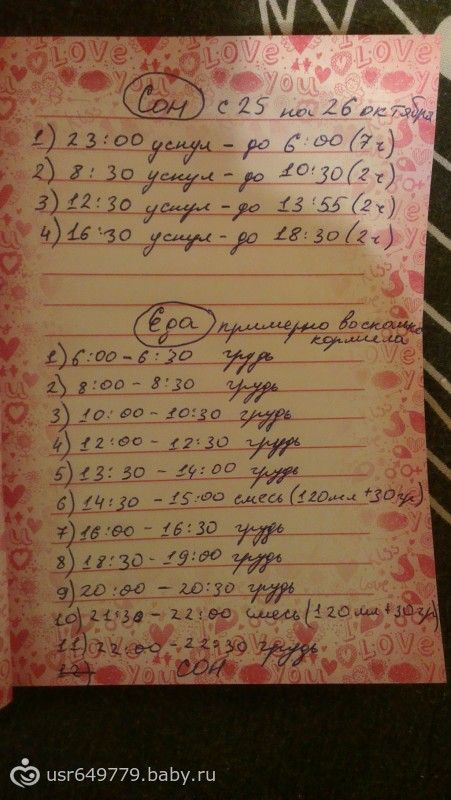 Сон с 25 на 26 октября
1) 23:00 уснул - до 6:00 (7ч)
2) 8:30 уснул - до 10:30 (2ч)
3) 12:30 уснул - до 13:55 (2ч)
4) 16:30 уснул - до 18:30 (2ч)
Еда примерно
кормила
1) 6:00 - 6:30 грудь
2) 8:00 - 8:30 грудь
3) 10:00 - 10:30 грудь
4) 12:00 - 12:30 грудь
5) 13:30 - 14:00 грудь
6) 14:30 - 15:00 смесь (120мл + 30гр)
7) 16:00 - 16:30 грудь
8) 18:30 - 19:00 грудь
9) 20:00 - 20:30 грудь
10) 21:30 - 22:00 смесь (120мл + 30гр)
11) 22:00 - 22:30 грудь
12) СОН
usr649779.baby.ru